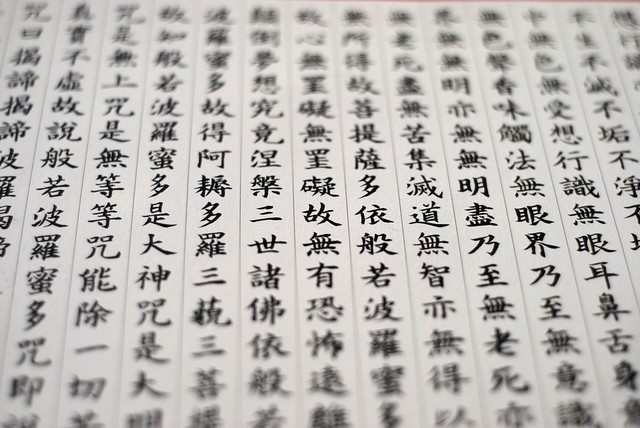 想行識
不生不滅不垢不淨不
中無色無受想行識無眼耳鼻舌身無
無色聲香味觸法無眼界乃至無意識
無無明亦無無明盡乃至無老死亦
無老死盡無苦集滅道無智亦無得以
無所得故菩提薩多依般若波羅蜜多
故心無罣礙無罣礙故無有恐怖遠離
顛倒夢想究竟涅槃三世諸佛依般若
波羅蜜多故得阿耨多羅三藐三菩提
故知般若波羅蜜多是大神咒是大明
咒是無上咒是無等等咒能除一切苦
真實不虛故說般若波羅蜜多咒即說
咒曰揭諦揭諦波羅揭諦